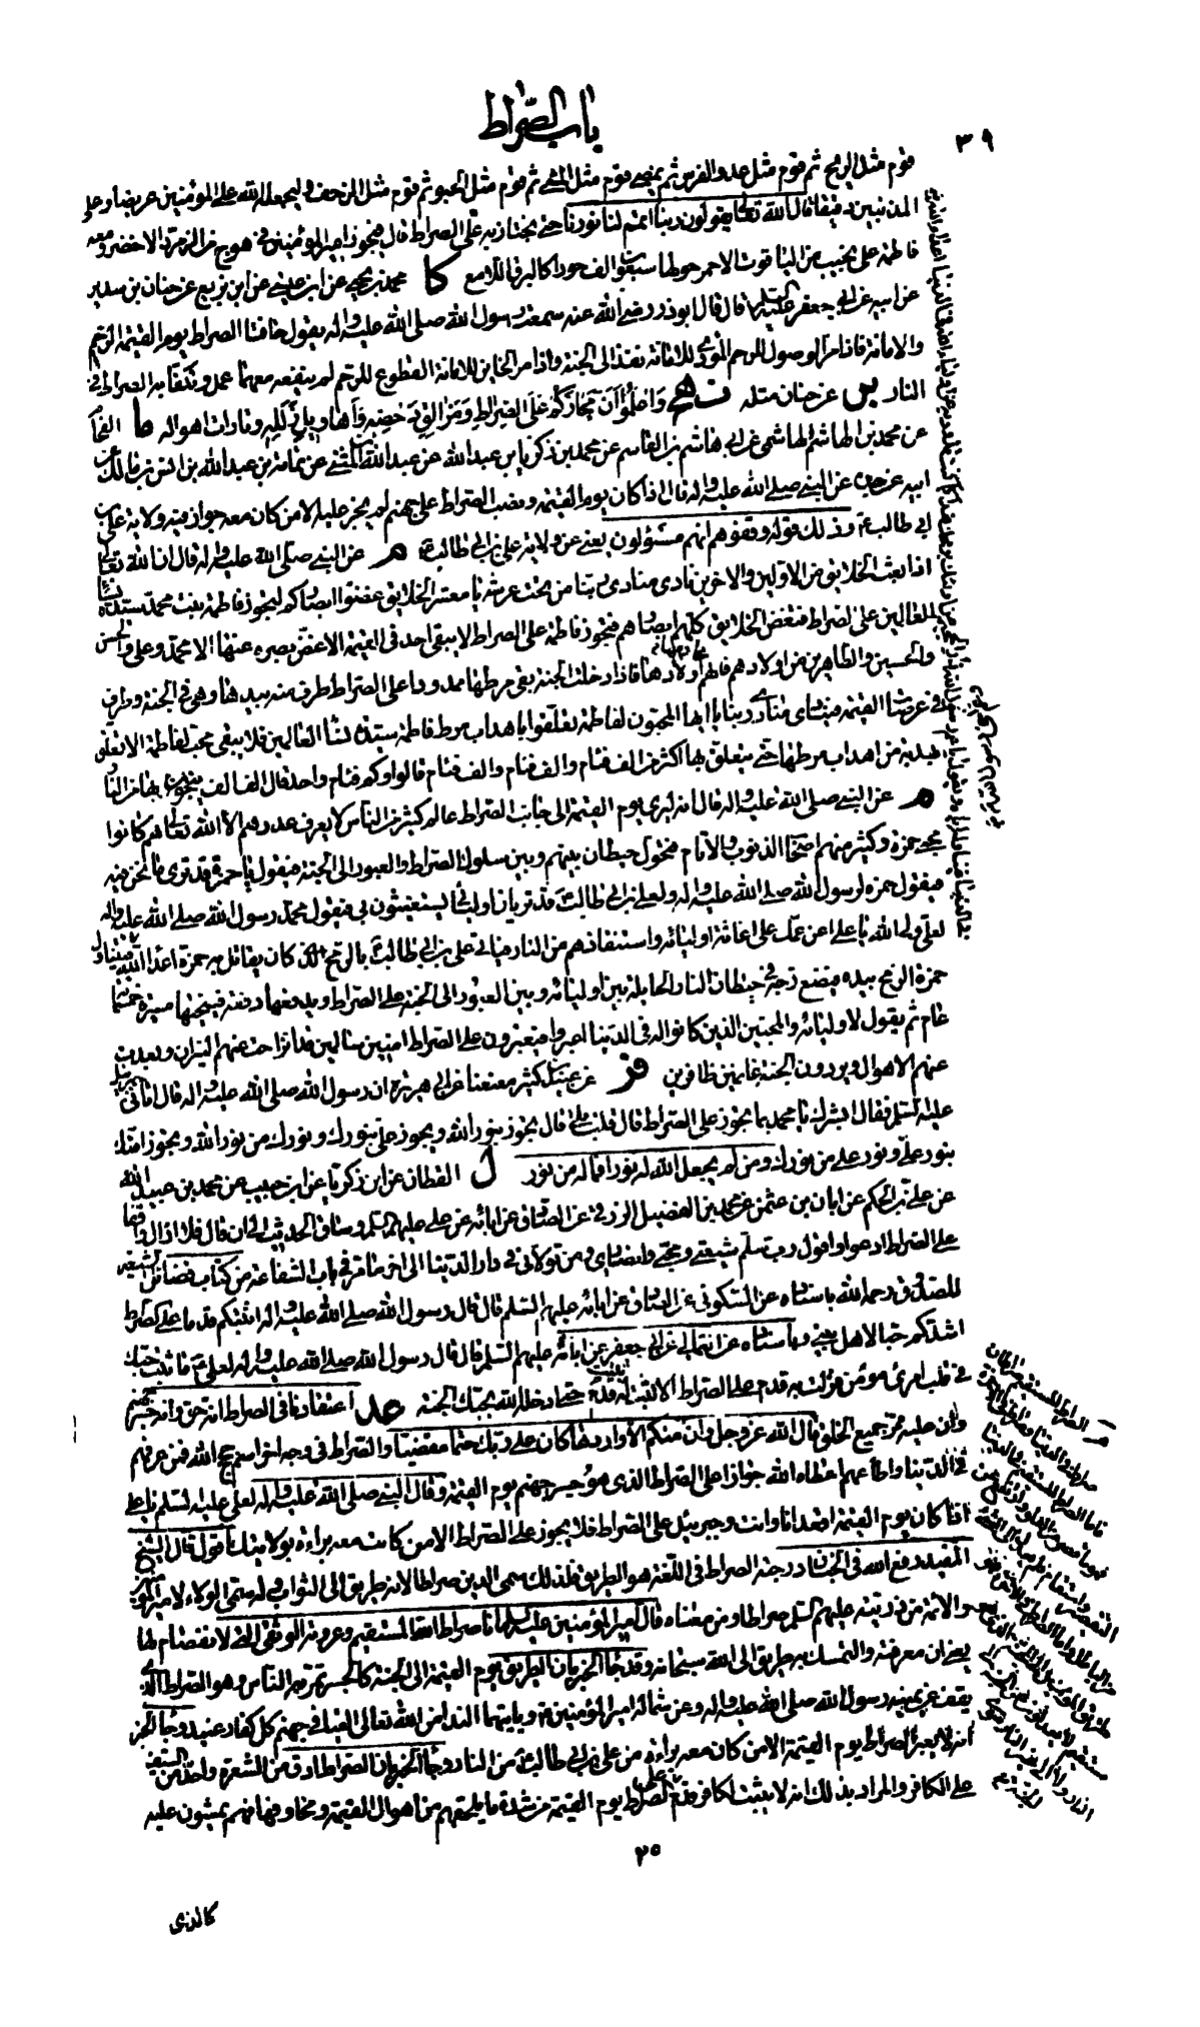 باب الصراط
٣٩
قوم مثل الريح ثم قوم مثل عدو الفرس ثم يمضي قوم مثل المشي ثم قوم مثل الحبو ثم قوم مثل الزحف وليجعله الله على المؤمنين عريضا وعلى
المذنبين دقيقا قال الله تعالى يقولون ربنا اتمم لنا نورنا حتى نجتاز به على الصراط قال فيجوز امير المؤمنين في هودج من الزمرد الاخضر ومعه
فاطمة على نجيب من الياقوت الاحمر حولها سبعون الف حوراء كالبرق اللامع كا محمد بن يحيى عن ابن عيسى عن ابن بزيع عن حنان بن سدير
عن ابيه عن ابي جعفر عليه السلم قال قال ابوذر رضي الله عنه سمعت رسول الله صلى الله عليه واله يقول حافتا الصراط يوم القيمة الرحم
والامانة فاذا مر الوصول للرحم المؤدي للامانة نفذ الى الجنة واذا مر الخاين للامانة القطوع للرحم لم ينفعه معهما عمل وتكفأ به الصراط في
النار ين عن حنان مثله نهج واعلموا ان مجازكم على الصراط ومزالق دحضه واهاويل زلله وتارات اهواله ما الفحام
عن محمد بن الهاشم الهاشمي عن ابي هاشم بن القاسم عن محمد بن زكريا بن عبد الله عن عبد الله بن المثنى عن ثمامة بن عبد الله بن انس بن مالك عن
ابيه عن جده عن النبي صلى الله عليه واله قال اذا كان يوم القيمة ونصب الصراط على جهنم لم يجز عليه الا من كان معه جواز فيه ولاية علي بن
ابي طالب ع وذلك قوله وقفوهم انهم مسئولون يعني عن ولاية علي بن ابي طالب ع م عن النبي صلى الله عليه واله قال ان الله تعالى
اذا بعث الخلايق من الاولين والاخرين نادى منادي ربنا من تحت عرشه يا معشر الخلايق غضوا ابصاركم لتجوز فاطمة بنت محمد سيدة نساء
العالمين على الصراط فتغض الخلايق كلهم ابصارهم فتجوز فاطمة على الصراط لا يبقى احد في القيمة الا غض بصره عنها الا محمد وعلي والحسن
والحسين والطاهرين من اولادهم فانهم اولادها فاذا دخلت الجنة بقي مرطها ممدودا على الصراط طرف منه بيدها وهي في الجنة وطرف
في عرصات القيمة فينادي منادي ربنا يا ايها المحبون لفاطمة تعلقوا باهداب مرط فاطمة سيدة نساء العالمين فلا يبقى محب لفاطمة الا تعلق
بهدبة من اهداب مرطها حتى يتعلق بها اكثر من الف فئام والف فئام والف فئام قالوا وكم فئام واحد قال الف الف ينجون بها من النار
م عن النبي صلى الله عليه واله قال انه ليرى يوم القيمة الى جانب الصراط عالم كثير من الناس لا يعرف عددهم الا الله تعالى هم كانوا
محبي حمزة وكثير منهم اصحاب الذنوب والاثام فتحول حيطان بينهم وبين سلوك الصراط والعبور الى الجنة فيقولون يا حمزة قد ترى ما نحن فيه
فيقول حمزة لرسول الله صلى الله عليه واله ولعلي بن ابي طالب ع قد تريان اوليائي يستغيثون بي فيقول محمد رسول الله صلى الله عليه واله
لعلي ولي الله يا علي اعن عمك على اغاثة اوليائه واستنقاذهم من النار فياتي علي بن ابي طالب ع بالرمح الذي كان يقاتل به حمزة اعداء الله فيناول
حمزة الرمح بيده فيضع زجه في حيطان النار الحايلة بين اوليائه وبين العبور الى الجنة على الصراط ويدفعها دفعة فينحيها مسيرة خمسمائة
عام ثم يقول لاوليائه والمحبين الذين كانوا له في الدنيا اعبروا فيعبرون على الصراط امنين سالمين قد انزاحت عنهم النيران وبعدت
عنهم الاهوال ويردون الجنة غانمين ظافرين فر عن عبيد بن كثير معنعنا عن ابي هريرة ان رسول الله صلى الله عليه واله قال اتاني جبرئيل
عليه السلم فقال ابشرك يا محمد بما تجوز على الصراط قال قلت بلى قال تجوز بنور الله ويجوز علي بنورك ونورك من نور الله وتجوز امتك
بنور علي ونور علي من نورك ومن لم يجعل الله له نورا فما له من نور ل القطان عن ابن زكريا عن ابن حبيب عن محمد بن عبيد الله
عن علي بن الحكم عن ابان بن عثمن عن محمد بن الفضيل الزرقي عن الصادق عن ابائه عن علي عليهم السلم وساق الحديث الى ان قال فلا ازال واقفا
على الصراط ادعو واقول رب سلم شيعتي ومحبي وانصاري ومن تولاني في دار الدنيا الى اخر ما مر في باب الشفاعة من كتاب فضائل الشيعة
للصدوق رحمه الله باسناده عن السكوني عن الصادق عن ابائه عليهم السلم قال قال رسول الله صلى الله عليه واله اثبتكم قدما على الصراط
اشدكم حبا لاهل بيتي وباسناده عن الثمالي عن ابي جعفر عن ابائه عليهم السلم قال قال رسول الله صلى الله عليه واله لعلي ع ما ثبت حبك
في قلب امرئ مؤمن فزلت به قدم على الصراط الا ثبتت له قدم حتى ادخله الله بحبك الجنة عد اعتقادنا في الصراط انه حق وانه جسر جهنم
وان عليه ممر جميع الخلق قال الله عز وجل وان منكم الا واردها كان على ربك حتما مقضيا والصراط في وجه اخر اسم حجج الله فمن عرفهم
في الدنيا واطاعهم اعطاه الله جوازا على الصراط الذي هو جسر جهنم يوم القيمة وقال النبي صلى الله عليه واله لعلي عليه السلم يا علي
اذا كان يوم القيمة اقعد انا وانت وجبرئيل على الصراط فلا يجوز على الصراط الا من كانت معه براءة بولايتك اقول قال الشيخ
المفيد رفع الله في الجنان درجته الصراط في اللغة هو الطريق فلذلك سمي الدين صراطا لانه طريق الى الثواب وله سمي الولاء لامير المؤمنين
والائمة من ذريته عليهم السلم صراطا ومن معناه قال امير المؤمنين عليه السلم انا صراط الله المستقيم وعروته الوثقى التي لا انفصام لها
يعني ان معرفته والتمسك به طريق الى الله سبحانه وقد جاء الخبر بان الطريق يوم القيمة الى الجنة كالجسر تمر به الناس وهو الصراط الذي
يقف عن يمينه رسول الله صلى الله عليه واله وعن شماله امير المؤمنين ع وياتيهما النداء من الله تعالى القيا في جهنم كل كفار عنيد وجاء الخبر
انه لا يعبر الصراط يوم القيمة الا من كان معه براءة من علي بن ابي طالب ع من النار وجاء الخبر بان الصراط ادق من الشعرة واحد من السيف
على الكافر والمراد بذلك انه لا يثبت لكافر قدم على الصراط يوم القيمة من شدة ما يلحقهم من اهوال القيمة ومخاوفها فهم يمشون عليه
٢٥
كالذي